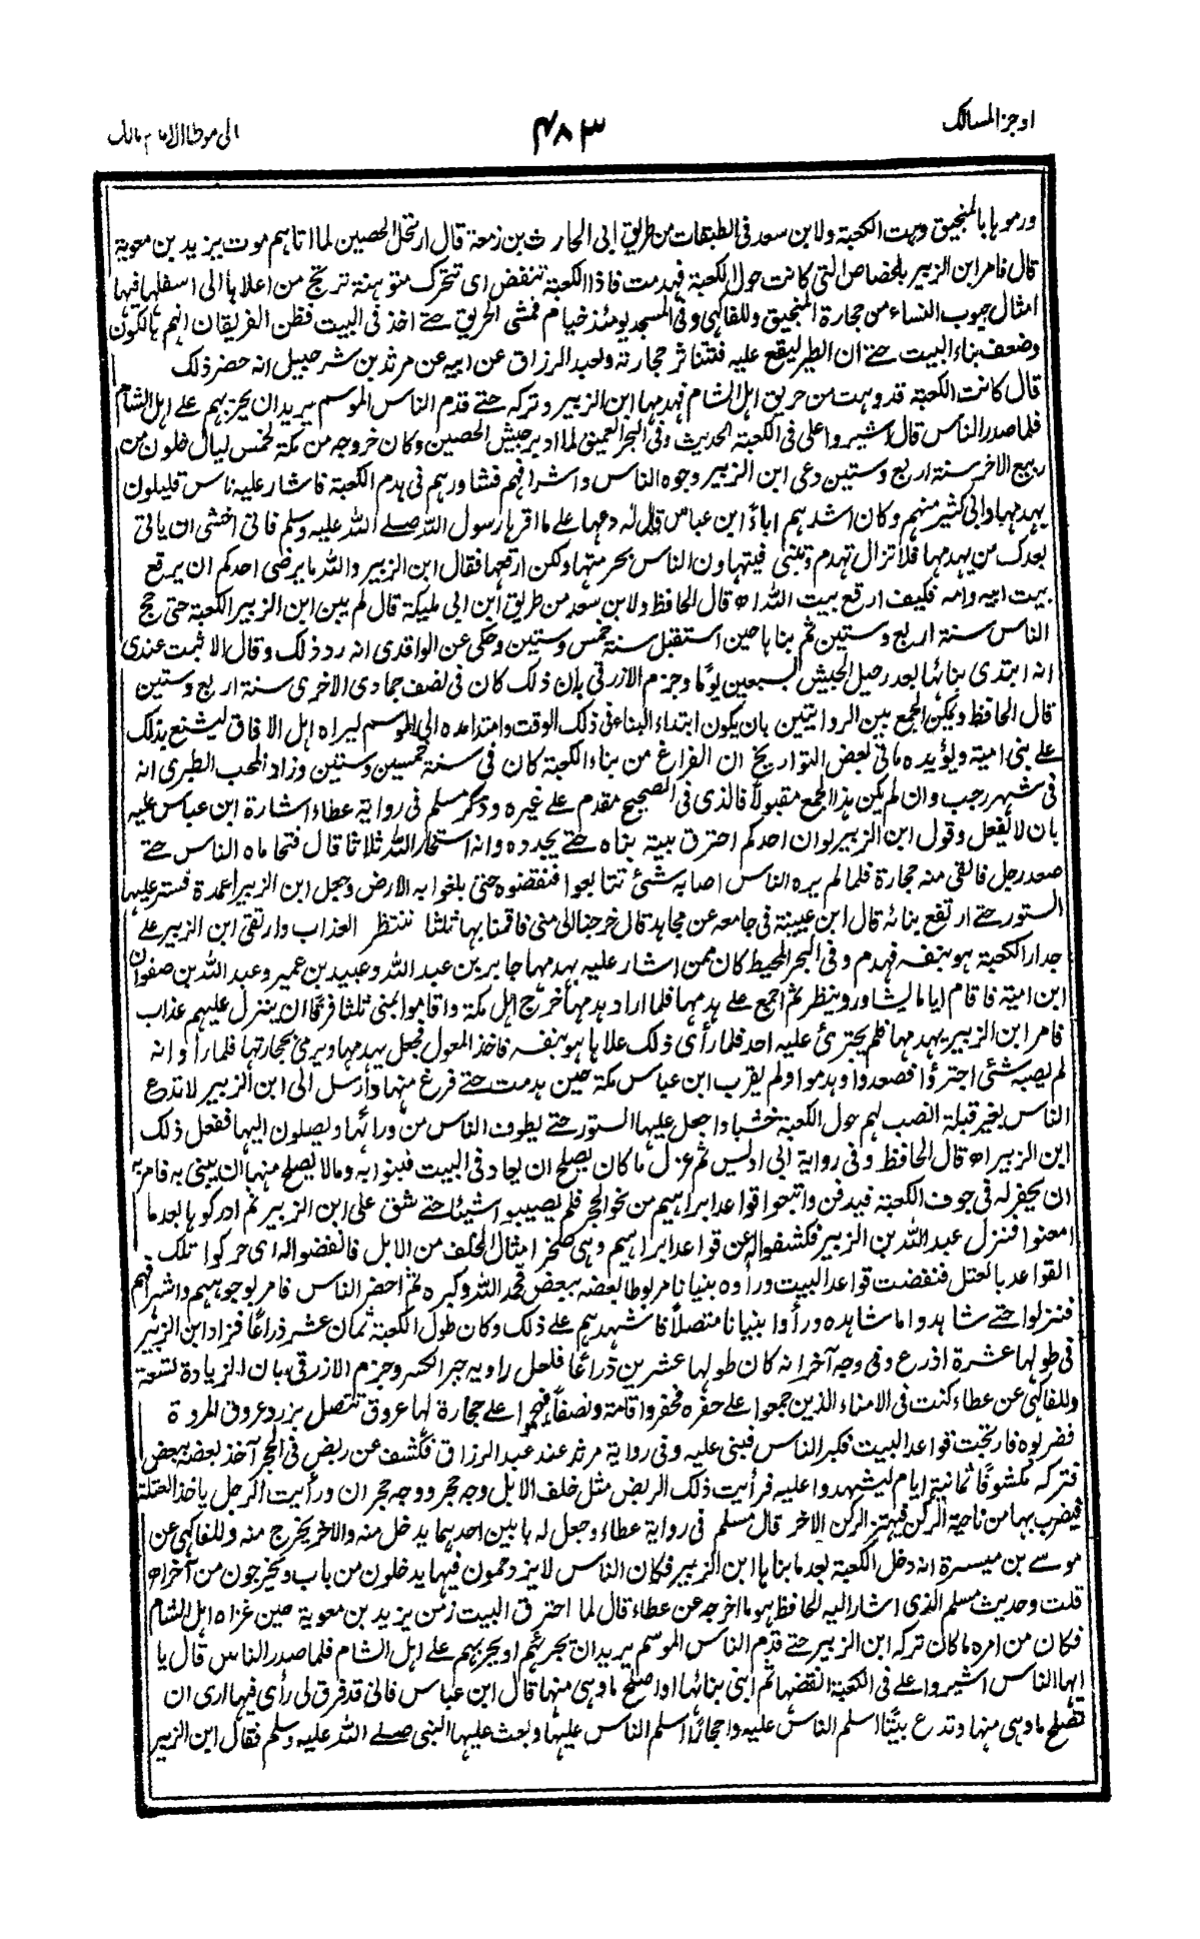 اوجز المسالك
٤٨٣
الى موطا الامام مالك
ورموها بالمنجيق وهت الكعبة ولابن سعد فى الطبقات من طريق ابى الحارث بن زمعة قال ارتحل الحصين لما اتاهم موت يزيد بن معوية
قال فامر ابن الزبير بالخصاص التى كانت حول الكعبة فهدمت فاذا الكعبة تنفض اى تتحرك متوهنة ترتج من اعلاها الى اسفلها فيها
امثال جيوب النساء من حجارة المنجيق وللفاكهى وفى المسجد يومئذ خيام فمشى الحريق حتے اخذ فى البيت فظن الفريقان انهم هالكون
وضعف بناء البيت حتے ان الطير ليقع عليه فتتناثر حجارته ولعبد الرزاق عن ابيه عن مرثد بن شرحبيل انه حضر ذلك
قال كانت الكعبة قد وهت من حريق اهل الشام فهدمها ابن الزبير وتركه حتے قدم الناس الموسم يريد ان يحزبهم علے اهل الشام
فلما صدر الناس قال اشيروا على فى الكعبة الحديث وفى البحر العميق لما ادبر جيش الحصين وكان خروجه من مكة لخمس ليال خلون من
ربيع الاخر سنة اربع وستين دعى ابن الزبير وجوه الناس واشرافهم فشاورهم فى هدم الكعبة فاشار عليه ناس قليلون
بهدمها وابى كثير منهم وكان اشدهم اباءً ابن عباس قال له دعها علے ما اقرها رسول الله صلے الله عليه وسلم فانى اخشى ان ياتى
بعدك من يهدمها فلا تزال تهدم وتبنى فيتهاون الناس بحرمتها ولكن ارقعها فقال ابن الزبير والله ما يرضى احدكم ان يرقع
بيت ابيه وامه فكيف ارقع بيت الله اھ قال الحافظ ولابن سعد من طريق ابن ابى مليكة قال لم يبن ابن الزبير الكعبة حتى حج
الناس سنة اربع وستين ثم بناها حين استقبل سنة خمس وستين وحكى عن الواقدى انه رد ذلك وقال الاثبت عندى
انه ابتدى بنائها بعد رحيل الجيش بسبعين يومًا وجزم الازرقى بان ذلك كان فى نصف جمادى الاخرى سنة اربع وستين
قال الحافظ ويمكن الجمع بين الروايتين بان يكون ابتداء البناء فى ذلك الوقت وامتد امده الى الموسم ليراه اهل الافاق ليشنع بذلك
علے بنى امية ويؤيده ما فى بعض التواريخ ان الفراغ من بناء الكعبة كان فى سنة خمسين وستين وزاد المحب الطبرى انه
فى شهر رجب وان لم يكن هذا الجمع مقبولًا فالذى فى الصحيح مقدم علے غيره وذكر مسلم فى رواية عطاء اشارة ابن عباس عليه
بان لا يفعل وقول ابن الزبير لو ان احدكم احترق بيته بناه حتے يجدده وانه استخار الله ثلاثا قال فتحاماه الناس حتے
صعد رجل فالقى منه حجارة فلما لم يره الناس اصابه شئ تتابعوا فنقضوه حتى بلغوا به الارض وجعل ابن الزبير اعمدة فستر عليها
الستور حتے ارتفع بنائه قال ابن عيينة فى جامعه عن مجاهد قال خرجنا الى منى فاقمنا بها ثلثا ننتظر العذاب وارتقى ابن الزبير علے
جدار الكعبة هو بنفسه فهدم وفى البحر المحيط كان ممن اشار عليه بهدمها جابر بن عبد الله وعبيد بن عمير وعبد الله بن صفوان
ابن امية فاقام اياما يشاور وينظر ثم اجمع علے هدمها فلما اراد هدمها خرج اهل مكة واقاموا بمنى ثلثا فرقًا ان ينزل عليهم عذاب
فامر ابن الزبير بهدمها فلم يجترئ عليه احد فلما رأى ذلك علاها هو بنفسه فاخذ المعول فجعل يهدمها ويرمى بحجارتها فلما رأوا انه
لم يصبه شئ اجترؤا فصعدوا وهدموا ولم يقرب ابن عباس مكة حين هدمت حتے فرغ منها وارسل الى ابن الزبير لا تدع
الناس بغير قبلة انصب لهم حول الكعبة خشبا واجعل عليها الستور حتے يطوف الناس من ورائها ويصلون اليها ففعل ذلك
ابن الزبير اھ قال الحافظ وفى رواية ابى اويس ثم عزل ما كان يصلح ان يعاد فى البيت فبنوا به وما لا يصلح منها ان يبنى به فامر به
ان يحفر له فى جوف الكعبة فيدفن واتبعوا قواعد ابراهيم من نحو الحجر فلم يصيبوا شيئا حتے شق على ابن الزبير ثم ادركوها بعد ما
امعنوا فنزل عبد الله بن الزبير فكشفوا له عن قواعد ابراهيم وهى صخر امثال الخلف من الابل فانفضوا له اى حركوا تلك
القواعد بالعتل فنفضت قواعد البيت ورأوه بنيانا مربوطا بعضه ببعض فحمد الله وكبره ثم احضر الناس فامر بوجوههم واشرافهم
فنزلوا حتے شاهدوا ما شاهده ورأوا بنيانا متصلًا فاشهدهم علے ذلك وكان طول الكعبة ثمان عشر ذراعًا فزاد ابن الزبير
فى طولها عشرة اذرع وفى وجه آخر انه كان طولها عشرين ذراعًا فلعل راويه جبر الكسر وجزم الازرقى بان الزيادة تسعة
وللفاكهى عن عطاء كنت فى الامناء الذين جمعوا على حفره فحفروا قامة ونصفًا فهجموا علے حجارة لها عروق تتصل بزرد عروق المروة
فضربوه فارتجت قواعد البيت فكبر الناس فبنى عليه وفى رواية مرثد عند عبد الرزاق فكشف عن ربض فى الحجر آخذ بعضه ببعض
فتركه مكشوفًا ثمانية ايام ليشهدوا عليه فرأيت ذلك الربض مثل خلف الابل وجه حجر ووجه حجران ورأيت الرجل ياخذ العتلة
فيضرب بها من ناحية الركن فيهتز الركن الاخر قال مسلم فى رواية عطاء وجعل له بابين احدهما يدخل منه والاخر يخرج منه وللفاكهى عن
موسے بن ميسرة انه دخل الكعبة بعد ما بناها ابن الزبير فكان الناس لا يزدحمون فيها يدخلون من باب ويخرجون من آخر اھ
قلت وحديث مسلم الذى اشار اليه الحافظ هو ما اخرجه عن عطاء قال لما احترق البيت زمن يزيد بن معوية حين غزاه اهل الشام
فكان من امره ما كان تركه ابن الزبير حتے قدم الناس الموسم يريد ان يجرئهم او يحربهم علے اهل الشام فلما صدر الناس قال يا
ايها الناس اشيروا علے فى الكعبة انقضها ثم ابنى بنائها او اصلح ما وهى منها قال ابن عباس فانى قد فرق لى رأى فيها ارى ان
تصلح ما وهى منها وتدع بيتًا اسلم الناس عليه واحجارًا اسلم الناس عليها وبعث عليها النبى صلے الله عليه وسلم فقال ابن الزبير